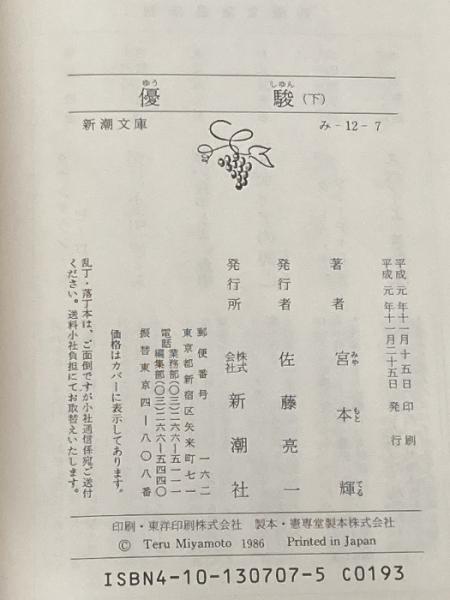 優駿(下)
ゆう しゅん
新潮文庫 み-12-7
平成元年十一月十五日 印刷
平成元年十一月二十五日 発行
著者 宮本輝
みや もと てる
発行者 佐藤亮一
発行所 株式会社 新潮社
郵便番号 一六二
東京都新宿区矢来町七一
電話 業務部(〇三)二六六―五一一一
編集部(〇三)二六六―五四四〇
振替東京四―八〇八番
価格はカバーに表示してあります。
乱丁・落丁本は、ご面倒ですが小社通信係宛ご送付
ください。送料小社負担にてお取替えいたします。
印刷・東洋印刷株式会社 製本・憲専堂製本株式会社
© Teru Miyamoto 1986 Printed in Japan
ISBN4-10-130707-5 C0193